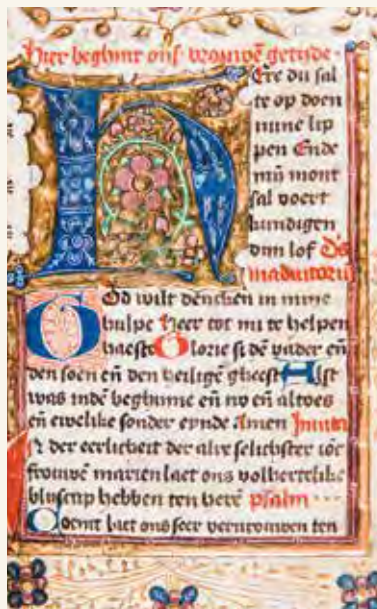 Hier beghint ons vrouwē getide
HEre du sal
te op doen
mine lip
pen Ende
mijn mont
sal voert
kundigen
dijn lof D's
in adiutoriū
GOd wilt dencken in mine
hulpe Heer tot mi te helpen
haeste Glorie si dē vader eñ
den soen eñ den heiligē gheest Alst
was indē beghinne eñ nv eñ altoes
eñ ewelike sonder eynde Amen Inuita
der eerlicheit der alre selichster
frouwē marien laet ons volhertelike
bliscap hebben ten herē psalm
Coemt laet ons seer verurouwen ten